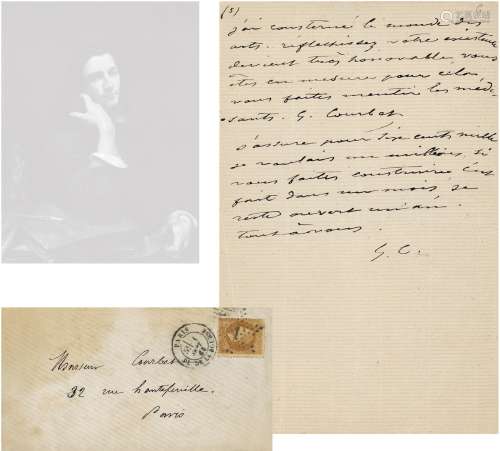 (5)
j'ai consterné le monde des
arts. réflechissez votre existence
devient très honorable, vous
êtes en mesure pour cela,
vous faites mentir les médi-
sants. G. Courbet
j'assure pour six cents mille
je voulais un million, si
vous faites construire c'est
fait dans un mois je
reste ouvert un an.
tout à vous.
G. C.
PARIS
Monsieur Courbet
32 rue hautefeuille.
Paris